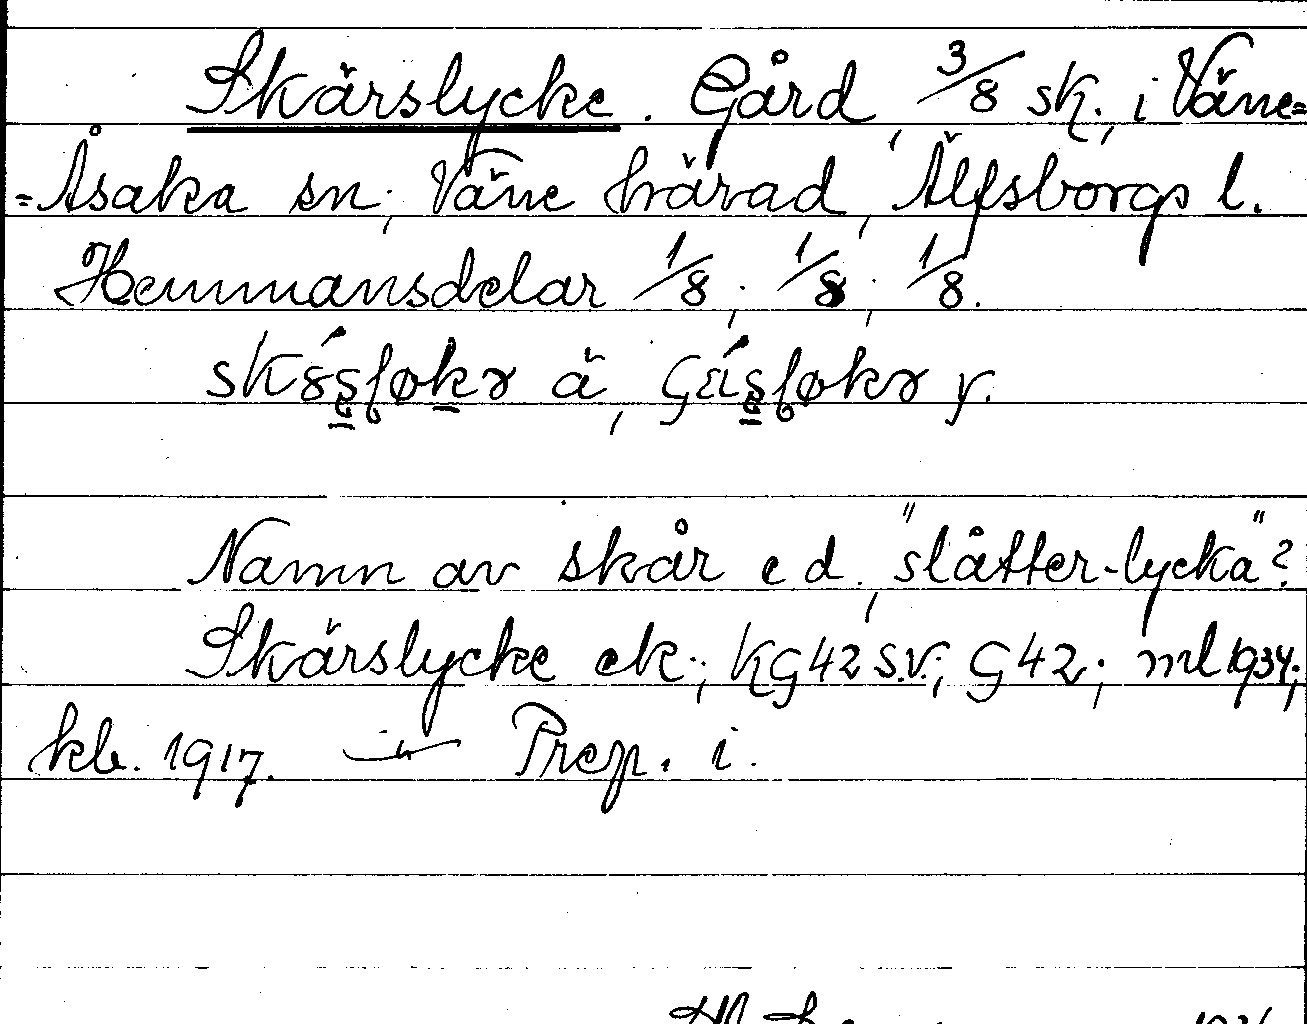 Skärslycke. Gård, 3/8 sk., i Väne=
=Åsaka sn, Väne härad, Älfsborgs l.
Hemmansdelar 1/8, 1/8, 1/8.
ä, y.
Namn av skår e d., "slåtter-lycka"?
Skärslycke ek.; KG42 S.V.; G42; ml 1934;
kb. 1917. — Prep. i.